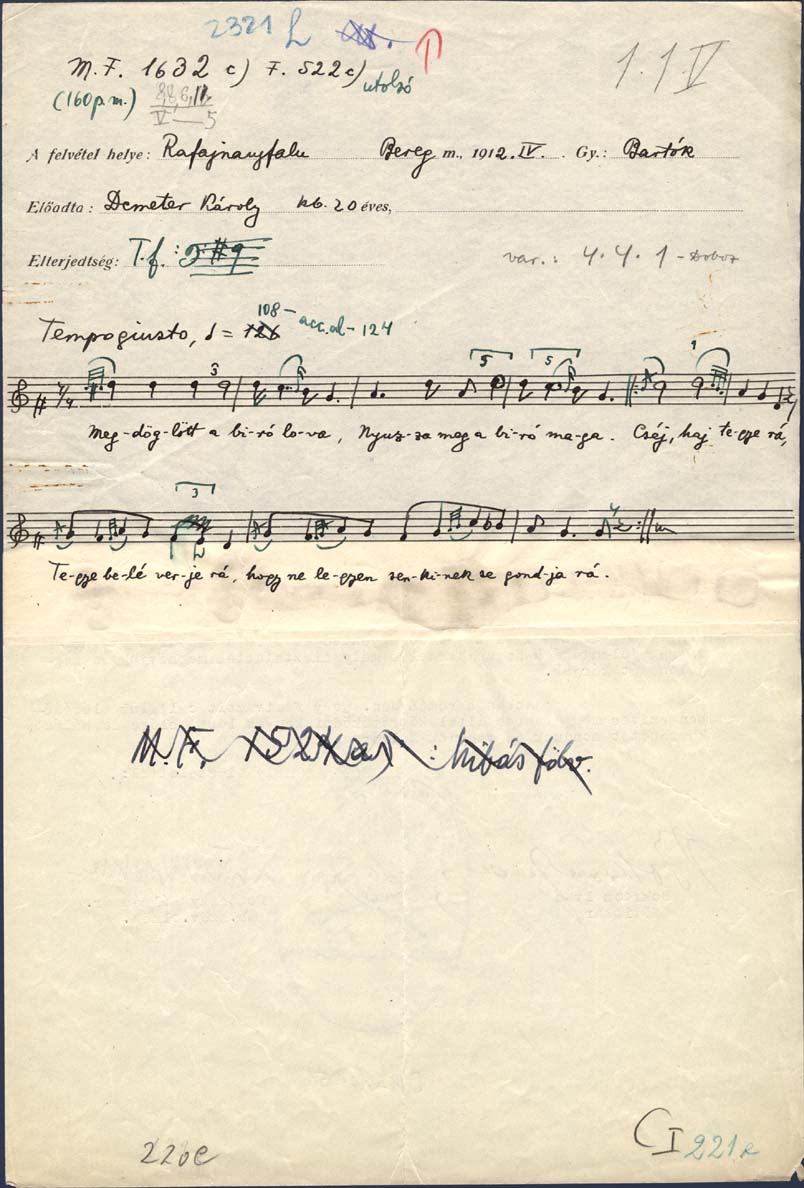 2321 L
M.F. 1632 c) F. 522 c) utolsó
1.1.V
(160 p.m.) 8,8,6,11.
V — 5
A felvétel helye: Rafajnaujfalu Bereg m., 1912. IV. Gy.: Bartók
Előadta: Demeter Károly kb. 20 éves,
Elterjedtség: T.f.:
var.: 4.4.1 - Doboz
108 - acc. al - 124
Tempo giusto, = 126
3 5 5
Meg-dög-lött a bi-ró lo-va, Nyuz-za meg a bi-ró ma-ga. Cséj, haj te-gye rá,
3
Te-gye be-lé ver-je rá, hogy ne le-gyen sen-ki-nek se gond-ja rá.
M.F. 1524 a) : hibás fölv.
220e
C I 221e